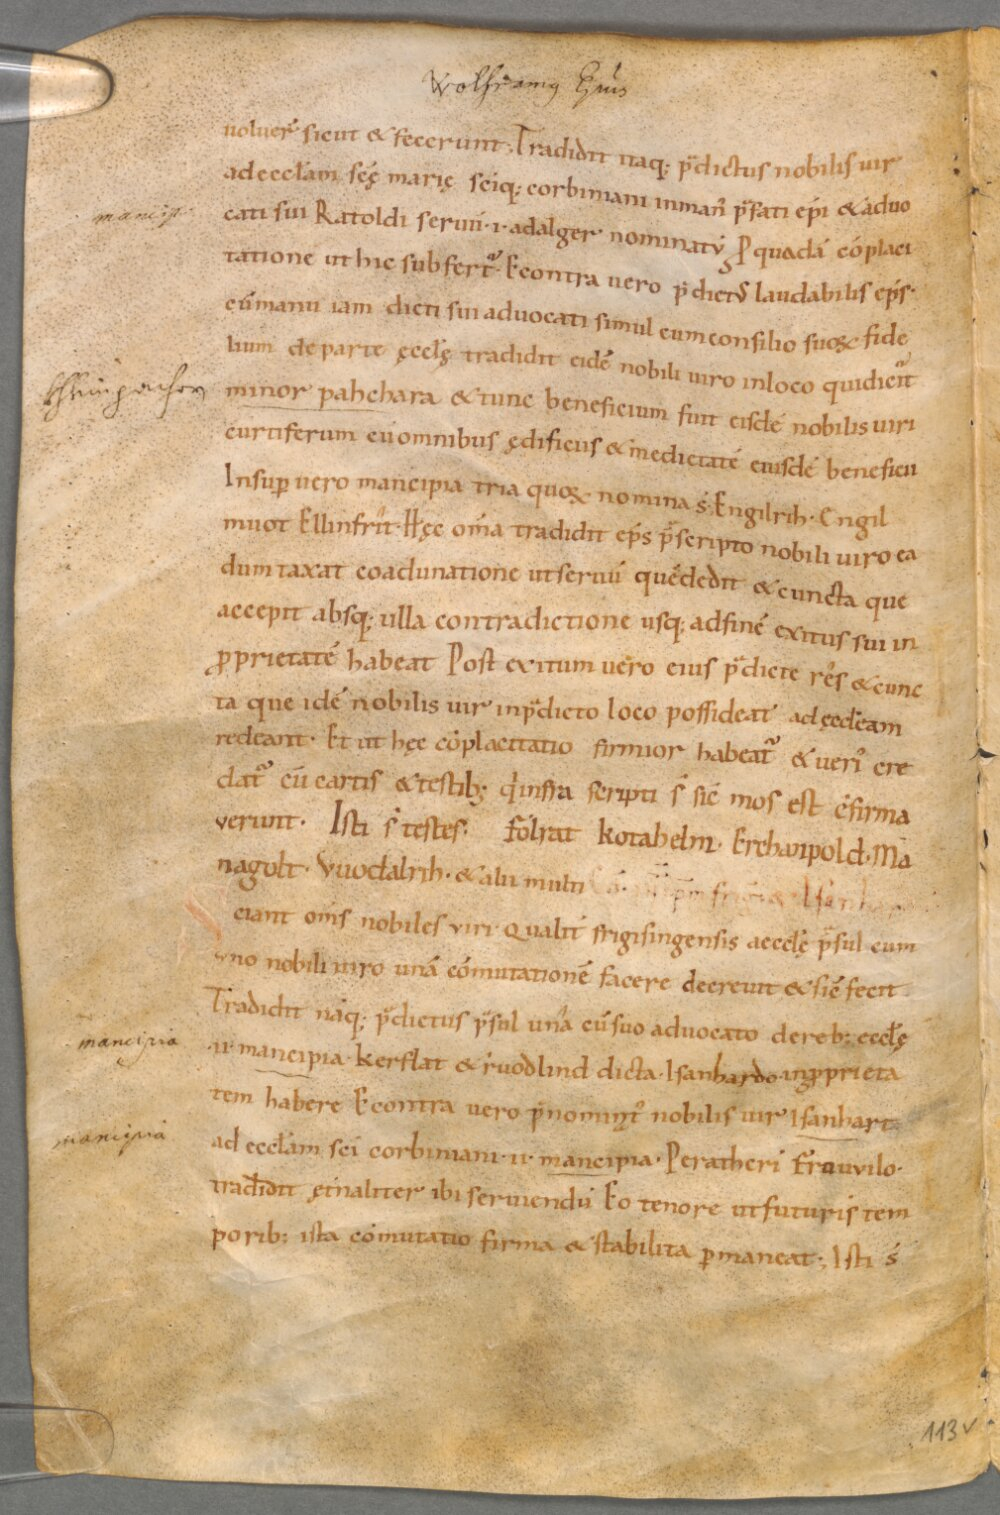 Wolframg Epus
voluer̄ sicut & fecerunt. Tradidit itaq; p̄dictus nobilis vir
ad eccłam scę marię sciq; corbiniani in man̄ p̄fati ep̄i & advo
mancip.
cati sui Ratoldi servū ·i· adalger nominatū P quadā cōplaci
tatione ut hic subfert̄. Econtra vero p̄dictus laudabilis ep̄s.
cū manu iam dicti sui advocati simul cum consilio suoꝝ fide
lium de parte ęcclę tradidit eidē nobili viro in loco qui dicit̄
minor pahchara & tunc beneficium fuit eisdē nobilis viri
curtiferum cū omnibus ędificiis & medietatē eiusdē beneficii
Insup vero mancipia tria quoꝝ nomina s̄. Engilrih. Engil
muot Ellinfrit. Hęc om̄a tradidit ep̄s p̄scripto nobili viro ea
dum taxat coadunatione ut servū quē dedit & cuncta que
accepit absq; ulla contradictione usq; ad finē exitus sui in
ꝓprietatē habeat Post exitum vero eius p̄dicte res & cunc
ta que idē nobilis vir in p̄dicto loco possideat ad ęccłeam
redeant. Et ut hęc cōplacitatio firmior habeat̄ & veri cre
dat̄ cū cartis & testib; qi infra scripti s̄ sic mos est cfirma
verunt. Isti s̄ testes. Folrat Kotahelm. Erchanpold. Ma
nagolt. Vuodalrih. & alii multi
Sciant om̄s nobiles viri Qualit̄ frigisingensis aecclę p̄sul cum
uno nobili viro unā cōmutationē facere decrevit & sic fecit
Tradidit naq; p̄dictus p̄sul una cū suo advocato de reb; ecclę
mancipia
·ii· mancipia. Kerflat & ruodlind dicta. Isanhardo in ꝓprieta
tem habere Econtra vero p̄nominat̄ nobilis vir Isanhart
mancipia
ad eccłam sci corbiniani ·ii· mancipia. Peratheri Frouvilo.
tradidit ętinaliter ibi serviendū Eo tenore ut futuris tem
porib; ista cōmutatio firma & stabilita pmaneat; Isti s̄
113v